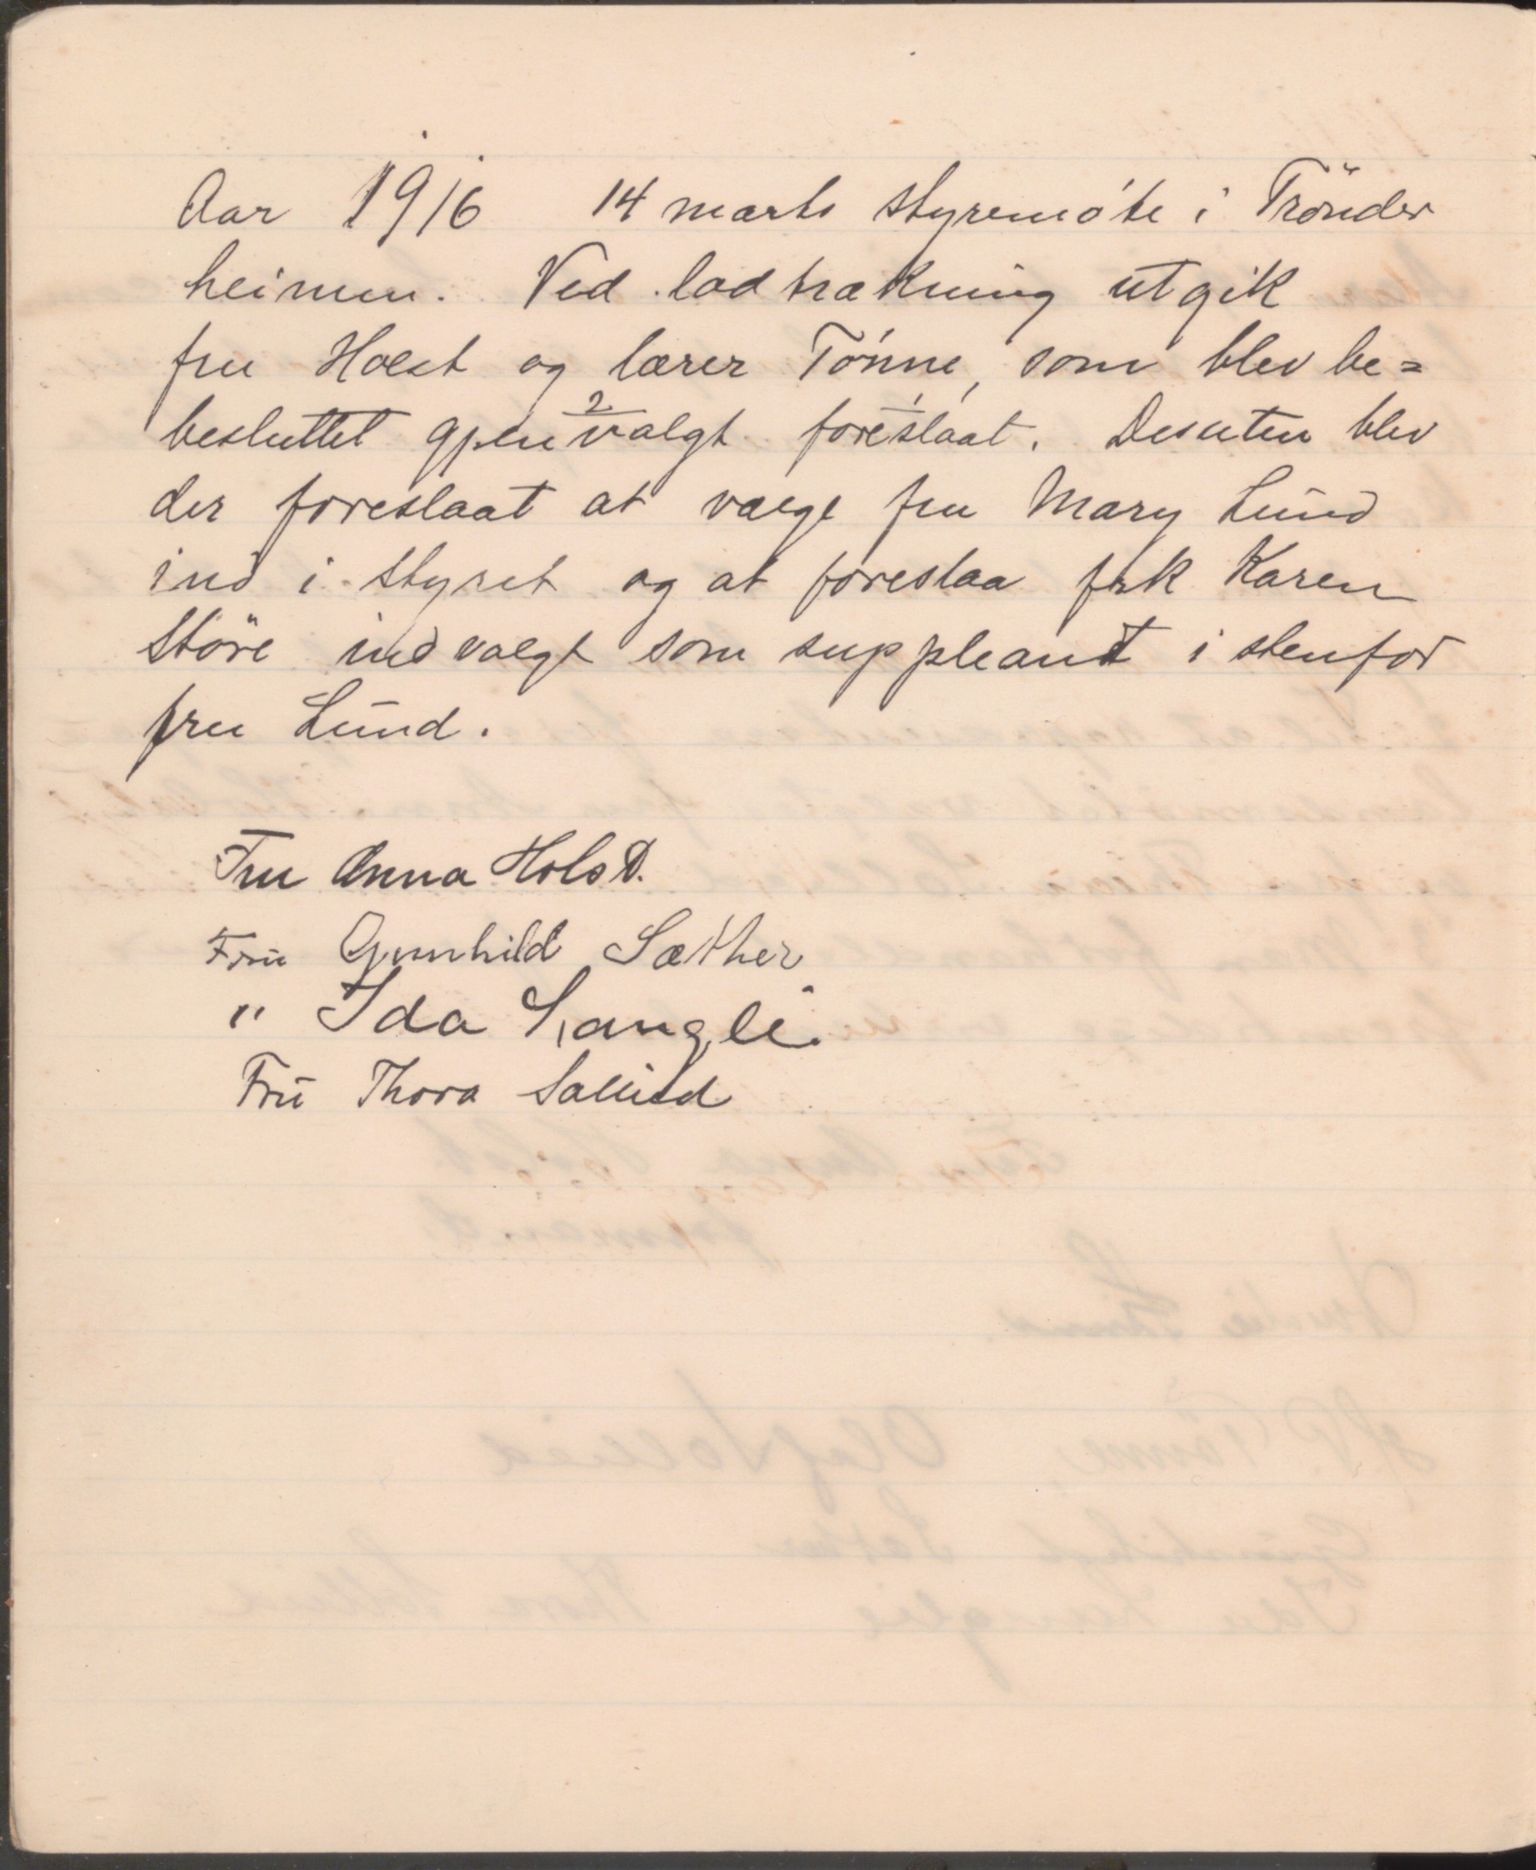 Aar 1916 14 marts styremöte i Trönder
heimen. Ved lodtrækning utgik
fru Holst og lærer Tönne, som blev be=
besluttet gjen 2 valgt foreslaat. Desuten blev
der foreslaat at vælge fru Mary Lund
ind i styret og at foreslaa frk Karen
Störe indvalgt som suppleant i stenfor
fru Lund.
Fru Anna Holst.
Fru Gunhild Sæther
" Ida Langli.
Fru Thora Sollied